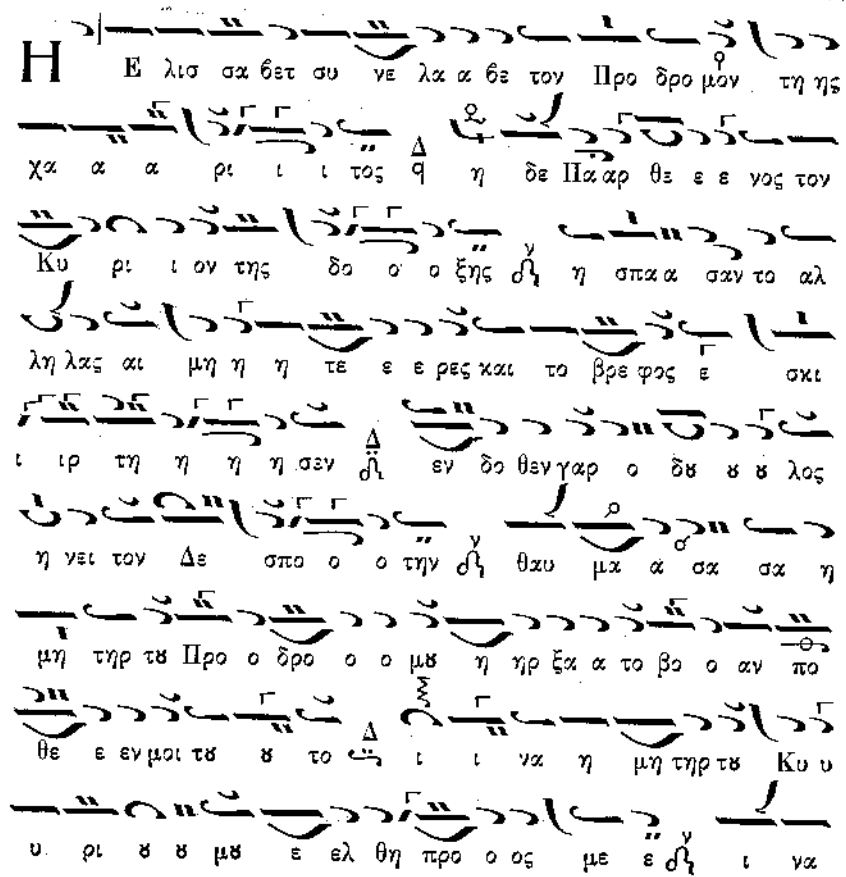 Η Ε λισ σα βετ συ νε λα α βε τον Προ δρο μον τη ης
χα α α ρι ι ι τος Δ q η δε Πα αρ θε ε ε νος τον
Κυ ρι ι ον της δο ο ο ξης ν η σπα α σαν το αλ
λη λας αι μη η η τε ε ε ρες και το βρε φος ε σκι
ι ιρ τη η η η σεν Δ εν δο θεν γαρ ο δȣ ȣ ȣ λος
η νει τον Δε σπο ο ο την ν θαυ μα α σα σα η
μη τηρ τȣ Προ ο δρο ο ο μȣ η ηρ ξα α το βο ο αν πο
θε ε εν μοι τȣ ȣ το Δ ι ι να η μη τηρ τȣ Κυ υ
υ ρι ȣ ȣ μȣ ε ελ θη προ ο ος με ε ν ι να